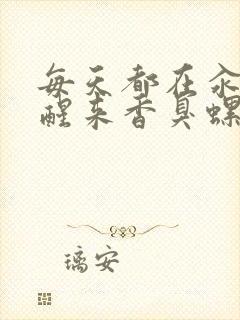 每天都在汆
醒来香臭螺
璃安